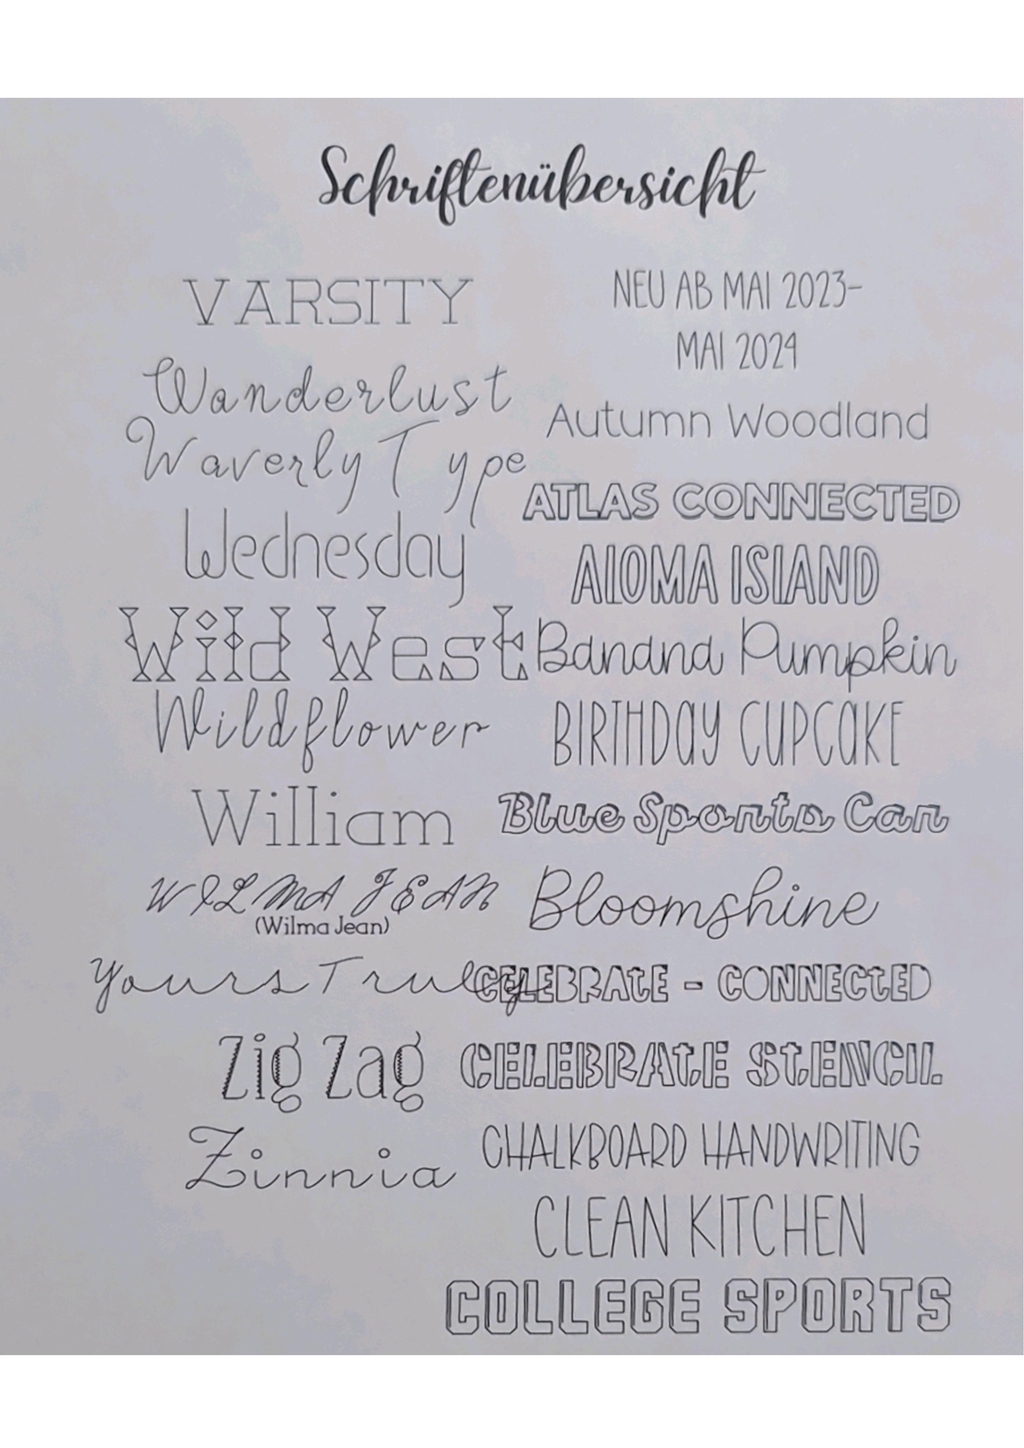 Schriftenübersicht
VARSITY
Wanderlust
Waverly Type
Wednesday
Wild West
Wildflower
William
WILMA JEAN
(Wilma Jean)
Yours Truly
Zig Zag
Zinnia
NEU AB MAI 2023-
MAI 2024
Autumn Woodland
ATLAS CONNECTED
AlOMA ISlAND
Banana Pumpkin
BIRTHDAY CUPCAKE
Blue Sports Car
Bloomshine
CELEBRATE - CONNECTED
CELEBRATE STENCIL
CHALKBOARD HANDWRITING
CLEAN KITCHEN
COLLEGE SPORTS